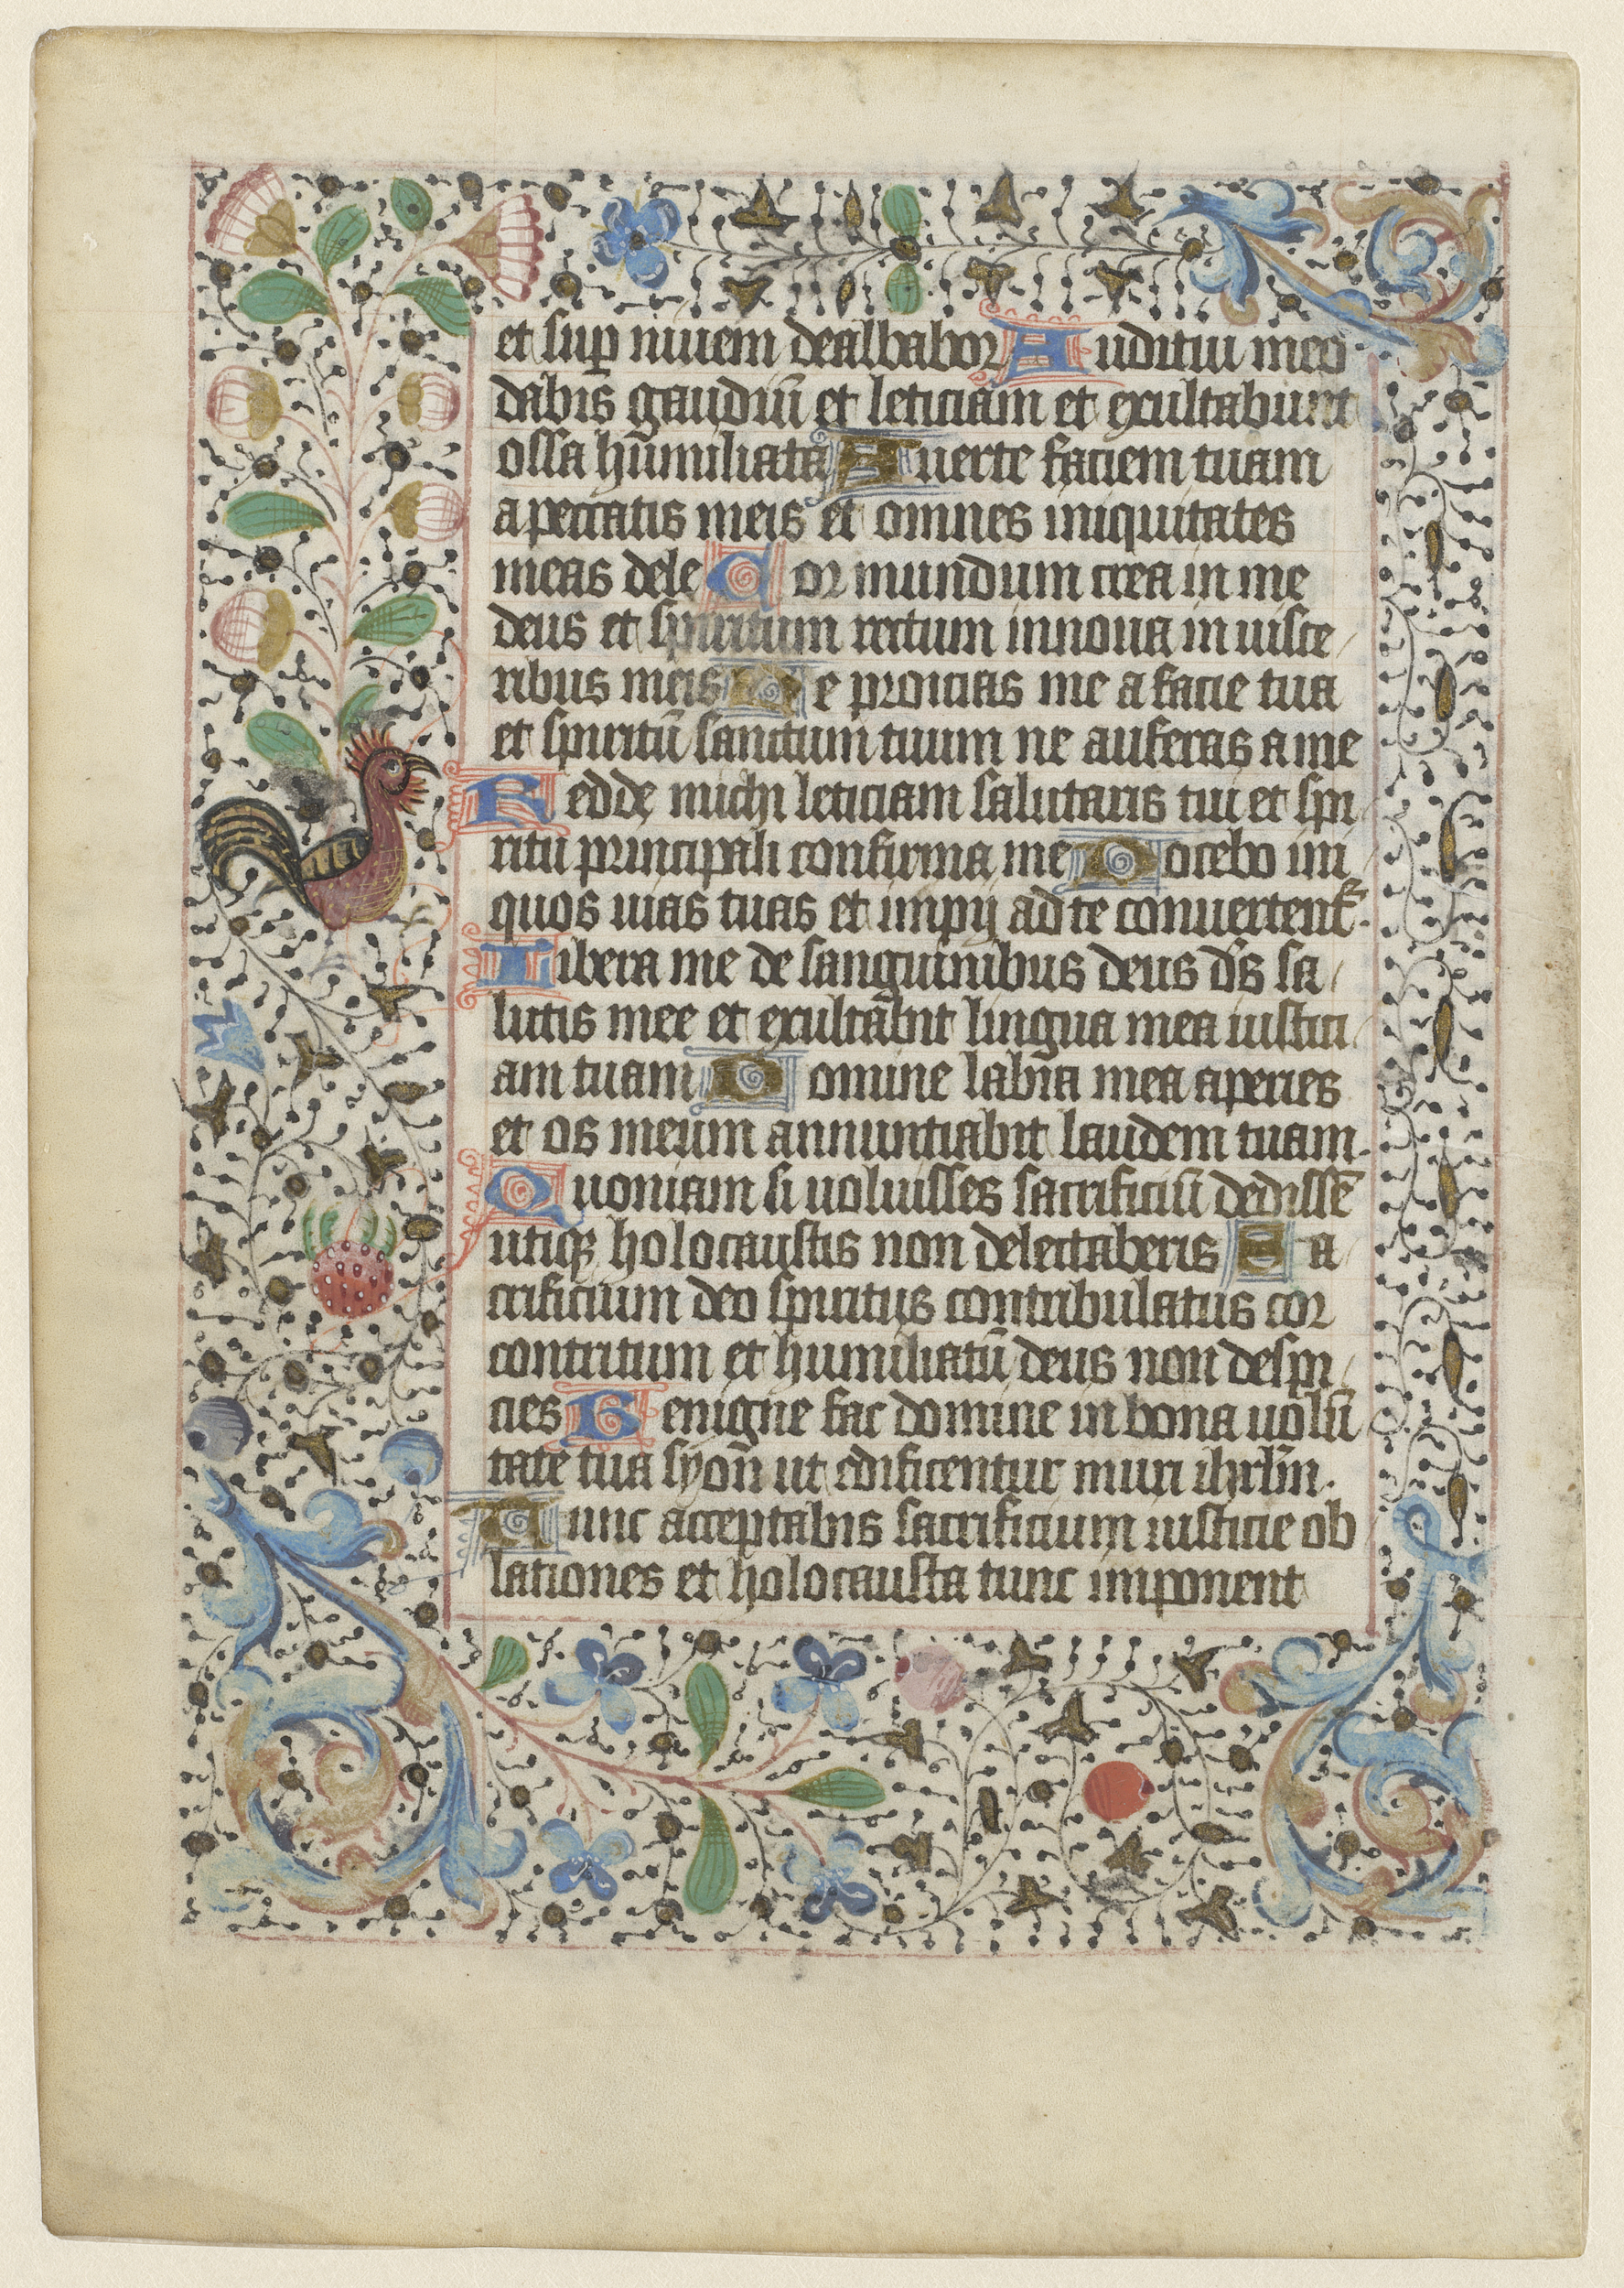 et sup niuem dealbabor Auditui meo
dabis gaudiū et leticiam et exultabunt
ossa hūmiliata Auerte faciem tuam
a peccatis meis et omnes iniquitates
meas dele Cor mundum crea in me
deus et spiritum rectum innoua in uisce
ribus meis Ne proicias me a facie tua
et spiritū sanctum tuum ne auferas a me
Redde michi leticiam salutaris tui et spi
ritu principali confirma me Docebo ini
quos uias tuas et impij ad te conuertent̄
Libera me de sanguinibus deus dn̄s sa
lutis mee et exultābit lingua mea iustici
am tuam Domine labia mea aperies
et os meum annuntiabit laudem tuam.
Quoniam si uoluisses sacrificiū dedissē
utiqꝫ holocaustis non delectaberis Sa
crificium deo spiritus contribulatus cor
contritum et humiliatū deus non despi
cies Benigne fac domine in bona uolū
tate tua syon ut edificentur muri ihrl̄m.
Tunc acceptabis sacrificium iusticie ob
lationes et holocausta tunc imponent